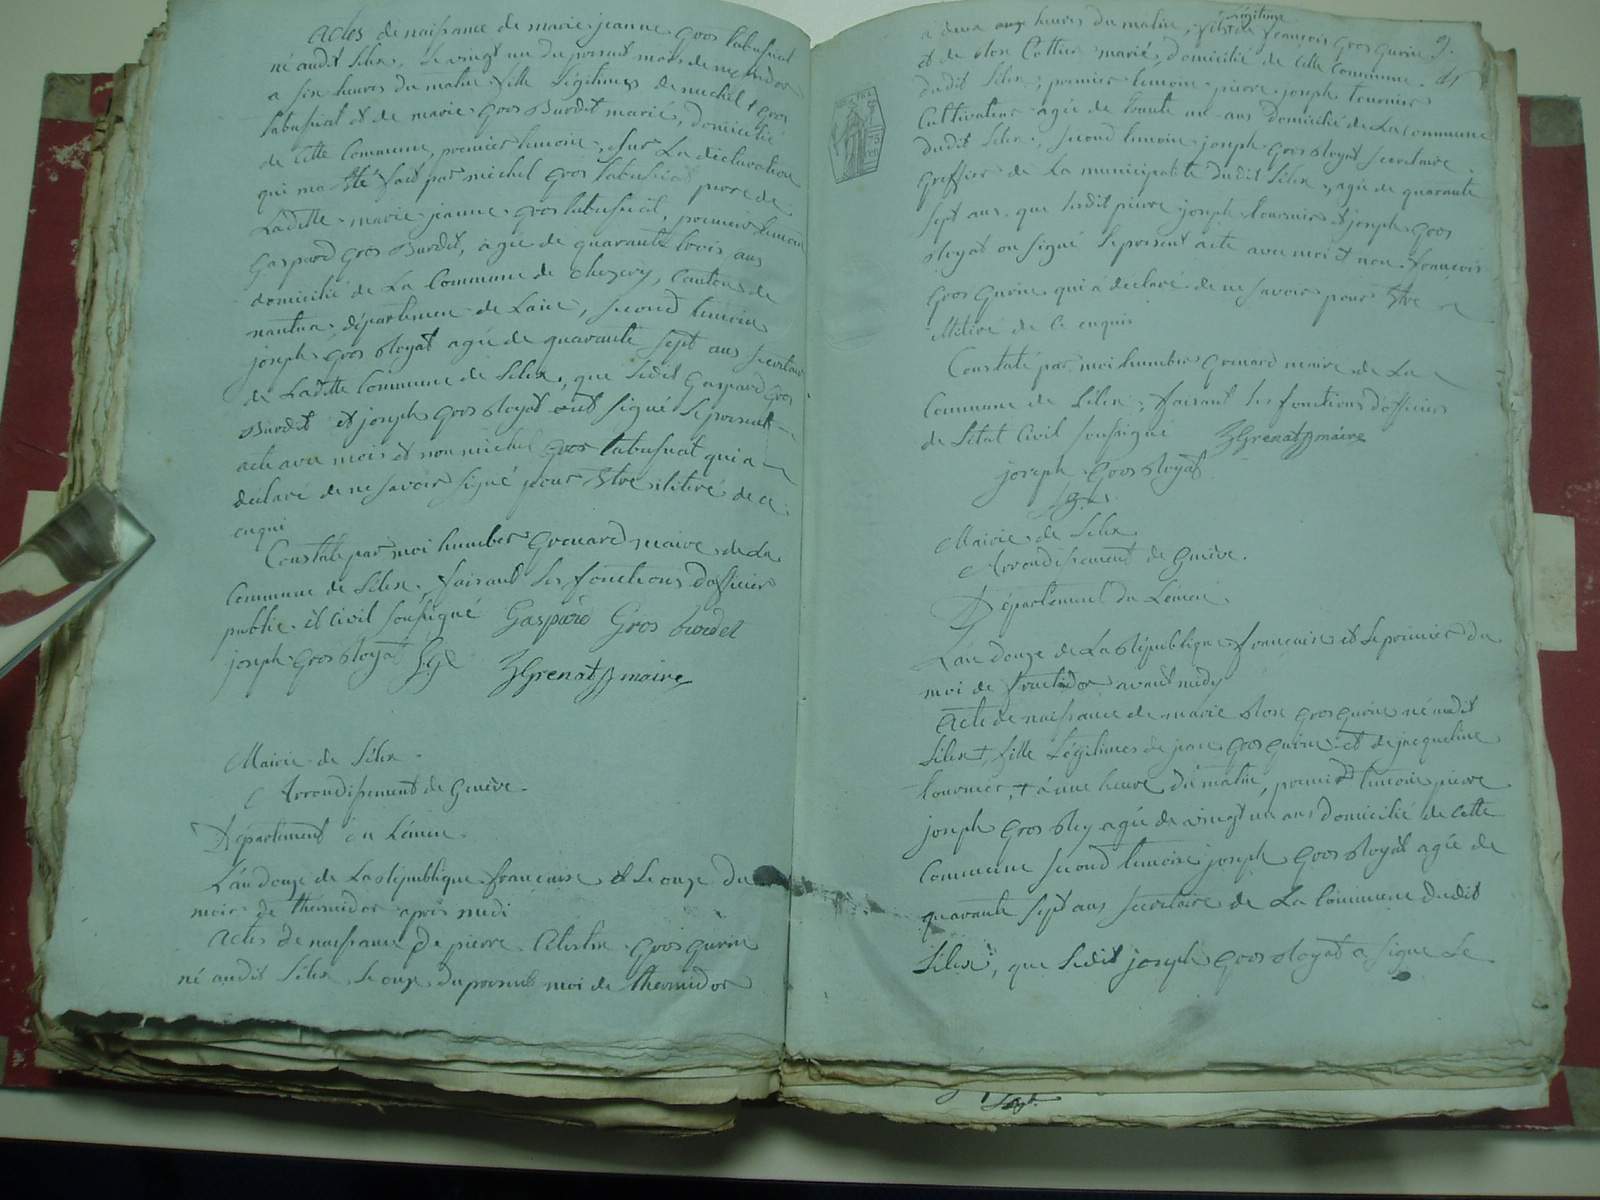 Actes de naissance de marie jeanne Gros
né audit Lélex, le vingt un du present mois de
a six heures du matin fille Légitimes de michel Gros
et de marie Gros Burdit mariés, domicilié
de Cette Commune, premier temoin, sur La déclaration
qui ma été fait par michel Gros pere de
Laditte marie jeanne Gros premier temoin
Gaspard Gros Burdit, agée de quarante trois ans
domicilié de La Commune de Chezery, Canton de
nantua département de Lain, second temoin
joseph Gros Royat agée de quarante sept ans secretaire
de Laditte Commune de Lélex, que Ledit Gaspard Gros
Burdit et joseph Gros Royat ont signé Le present
acte avec mois et non michel Gros qui a
déclaré de ne savoir signé pour Etre ilitiré de ce
enqui
Constaté par moi humber Grenard maire de La
Commune de Lélex, faisant Les fonctions dofficier
public et Civil soussigné Gaspard Gros burdet
joseph Gros Royat HGrenard maire
Mairie de Lélex
Arrondissement de Genève.
Département du Léman.
L'an douze de La République française et Le onze du
mois de thermidor après midi
Actes de naissance de pierre Celestin Gros Gurin
né audit Lélex Le onze du present moi de thermidor
a deux heures du matin, fils Légitime de françois Gros Gurin 9.
et de Rose Cottier marié, domicilié de Cette Commune
dudit Lélex; premier temoin pierre joseph tournier
Cultivateur agée de trente un ans domicilié de La Commune
dudit Lélex, second temoin joseph Gros Royat secretaire
Greffier de La municipalité dudit Lélex, agée de quarante
sept ans. que Ledit pierre joseph tournier et joseph Gros
Royat on signé Le present acte avec moi et non françois
Gros Gurin qui a declaré de ne savoir pour Etre
ilitiré de Ce enquis
Constaté par moi humber Grenard maire de La
Commune de Lélex, faisant Les fonctions dofficier
de Létat Civil soussigné HGrenard maire
joseph Gros Royat
Mairie de Lélex
Arrondissement de Genève.
Département du Léman.
L'an douze de La République français et Le premier du
moi de fructidor avant midy
Acte de naissance de marie Rose Gros Gurin né audit
Lélex fille Légitimes de Gros Gurin et de jacqueline
tournier, a une heure du matin, premier temoin pierre
joseph Gros Rey agée de vingt un ans domicilié de Cette
Commune second temoin joseph Gros Royat agée de
quarante sept ans secretaire de La Commune dudit
Lélex, que Ledit joseph Gros Royat a signé Le